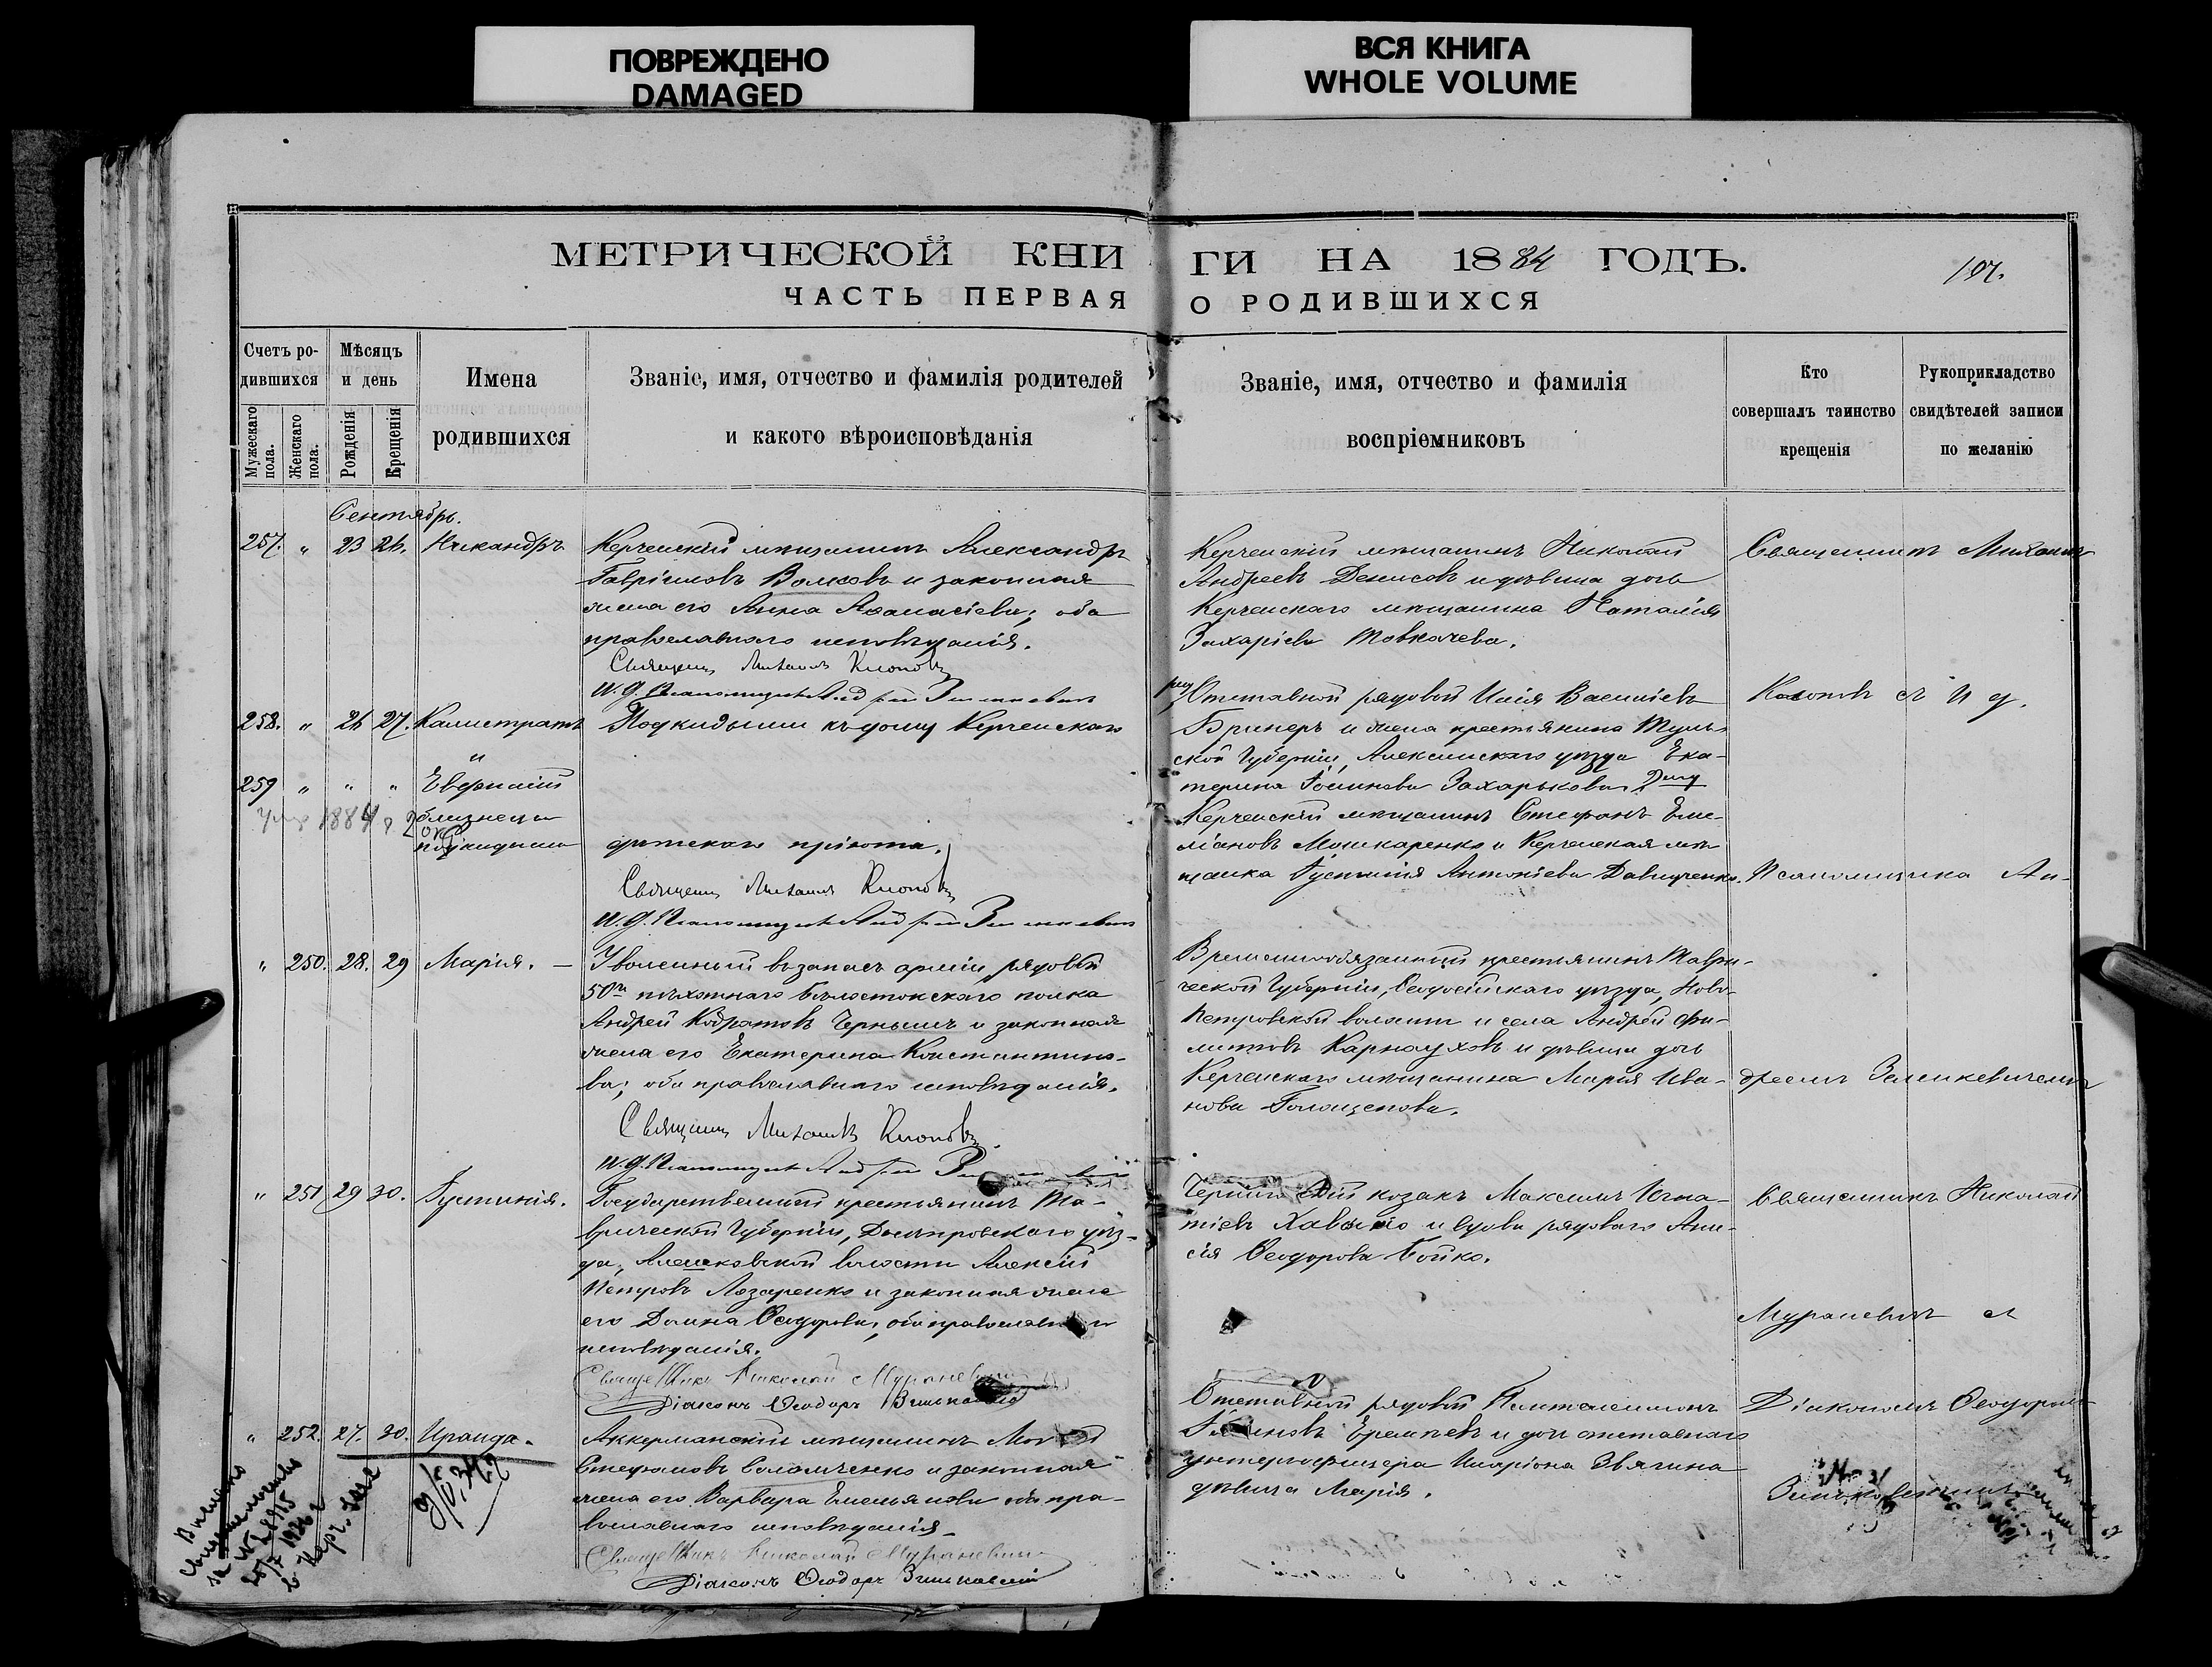 ПОВРЕЖДЕНО
DAMAGED
ВСЯ КНИГА
WHOLE VOLUME
МЕТРИЧЕСКОЙ КНИ
ГИ НА 1884 ГОДЪ.
107.
ЧАСТЬ ПЕРВАЯ
О РОДИВШИХСЯ
Счетъ ро-
дившихся
Мужескаго
пола.
Женскаго
пола.
Мѣсяцъ
и день
Рожденія
Крещенія
Имена
родившихся
Званіе, имя, отчество и фамилія родителей
и какого вѣроисповѣданія
Званіе, имя, отчество и фамилія
воспріемниковъ
Кто
совершалъ таинство
крещенія
Рукоприкладство
свидѣтелей записи
по желанію
Сентябрь.
257. " 23 26. Никандръ
Керченскій мѣщанинъ Александръ
Гавріиловъ Волковъ и законная
жена его Анна Аѳанасіева; оба
православнаго исповѣданія.
Священ. Михаилъ Клоповъ
И. д. Псаломщика Андрей
Керченскій мѣщанинъ Николай
Андреевъ Денисовъ и дѣвица дочь
Керченскаго мѣщанина Наталія
Захаріева Товкачева.
Священникъ Михаилъ
258. " 26 27. Калистратъ
и
259 " " " Евфнасій
близнецы
подкидыши
Подкидыши къ дому Керченскаго
дѣтскаго пріюта.
Священ. Михаилъ Клоповъ
И. д. Псаломщика Андрей
Отставной рядовой Илія Василіевъ
Бринеръ и жена крестьянина Туль-
ской Губерніи, Алексинскаго уѣзда Ека-
терина Іоаннова Захарькова
Керченскій мѣщанинъ Стефанъ Еме-
ліановъ Мошкаренко и Керченская мѣ-
щанка Іустинія Антоніева Давиденко.
Клоповъ съ И д.
Псаломщика Ан-
" 250. 28. 29 Марія. —
Уволенный въ запасъ арміи рядовой
50го пѣхотнаго Бѣлостокскаго полка
Андрей Кодратовъ Чернышъ и законная
жена его Екатерина Константино-
ва; оба православнаго исповѣданія.
Священ. Михаилъ Клоповъ
И. д. Псаломщика Андрей
Временнообязанный крестьянинъ Таври-
ческой Губерніи, Ѳеодосійскаго уѣзда, Ново-
Петровской волости и села Андрей Фи-
липповъ Карнауховъ и дѣвица дочь
Керченскаго мѣщанина Марія Ива-
нова Голощепова.
дреемъ Зелинкевичемъ
" 251 29 30. Іустинія.
Государственный крестьянинъ Та-
врической Губерніи, Днѣпровскаго уѣз-
да, Алешковской волости Алексій
Петровъ Лазаренко и законная жена
его Домна Ѳеодорова, оба православнаго
исповѣданія.
Священникъ Николай Мураневичъ
Діаконъ Ѳеодоръ Зиньковскій
козакъ Максимъ Игна-
тіевъ и вдова рядоваго Ани-
сія Ѳеодорова Бойко.
Священникъ Николай
Мураневичъ съ
" 252. 27. 30. Ираида.
Аккерманскій мѣщанинъ
Стефановъ Соломченко и законная
жена его Варвара Емельянова оба пра-
вославнаго исповѣданія
Священникъ Николай Мураневичъ
Діаконъ Ѳеодоръ Зиньковскій
Отставной рядовой Пантелеимонъ
Еремѣевъ и дочь отставнаго
унтерофицера Иларіона Звягина
дѣвица Марія.
Діакономъ Ѳеодоромъ
Зиньковскимъ